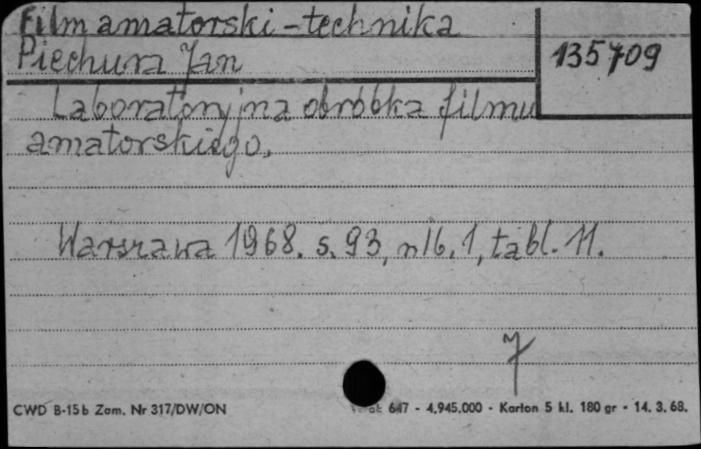 Film amatorski - technika
Piechura Jan
135709
Laboratoryjna obróbka filmu
amatorskiego.
Warszawa 1968. s. 93, nlb. 1, tabl. 11.
7
CWD B-15b Zam. Nr 317/DW/ON
647 - 4.945.000 - Karton 5 kl. 180 gr - 14. 3. 68.